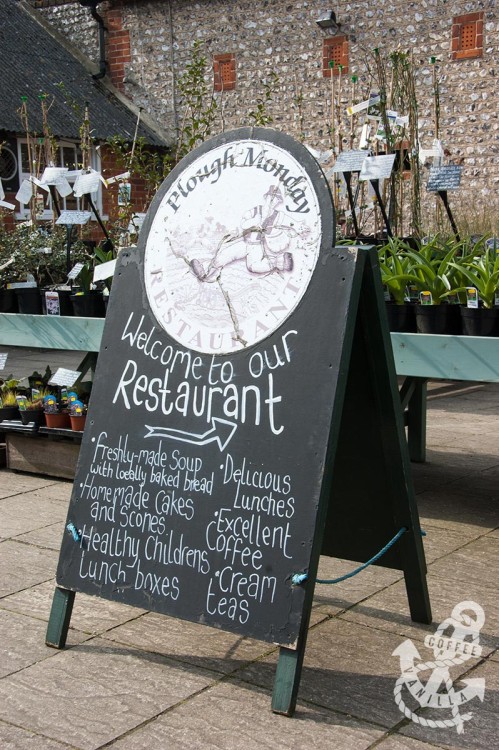 Plough Monday
RESTAURANT
Welcome to our
Restaurant
• Freshly-made Soup
with locally baked bread
• Homemade Cakes
and Scones
• Healthy Childrens
lunch boxes
• Delicious
Lunches
• Excellent
Coffee
• Cream
teas
COFFEE
VANILLA